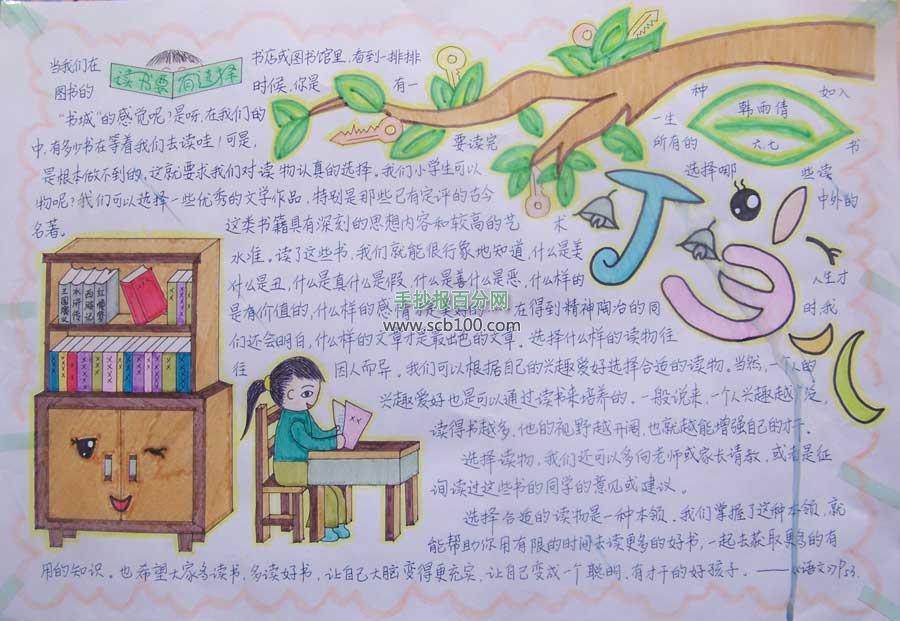 读书要有选择
当我们在 书店或图书馆里,看到一排排
图书的 时候,你是 有一 种 如入
“书城”的感觉呢?是呀,在我们的 一生
中,有多少书在等着我们去读哇!可是, 要读完 所有的 书
是根本做不到的,这就要求我们对读物认真的选择。我们小学生可以 选择哪 些读
物呢?我们可以选择一些优秀的文学作品,特别是那些已有定评的古今 中外的
名著。 这类书籍具有深刻的思想内容和较高的艺 术
水准。读了这些书,我们就能很行象地知道,什么是美
什么是丑,什么是真什么是假,什么是善什么是恶,什么样的 人生才
是有价值的,什么样的感情 在得到精神陶冶的同 时,我
们还会明白,什么样的文章才是最出色的文章。选择什么样的读物往
往 因人而异。我们可以根据自己的兴趣爱好选择合适的读物。当然,一个人的
兴趣爱好也是可以通过读书来培养的。一般说来,一个人兴趣越广泛,
读得书越多,他的视野越开阔,也就越能增强自己的才干。
选择读物,我们还可以多向老师或家长请教,或者是征
询读过这些书的同学的意见或建议。
选择合适的读物是一种本领。我们掌握了这种本领,就
能帮助你用有限的时间去读更多的好书,一起去获取更多的有
用的知识。也希望大家多读书,多读好书,让自己大脑变得更充实,让自己变成一个聪明,有才干的好孩子。——《语文》P23
韩雨倩
六、七
三国演义
水浒传
西游记
红楼梦
手抄报百分网
www.scb100.com